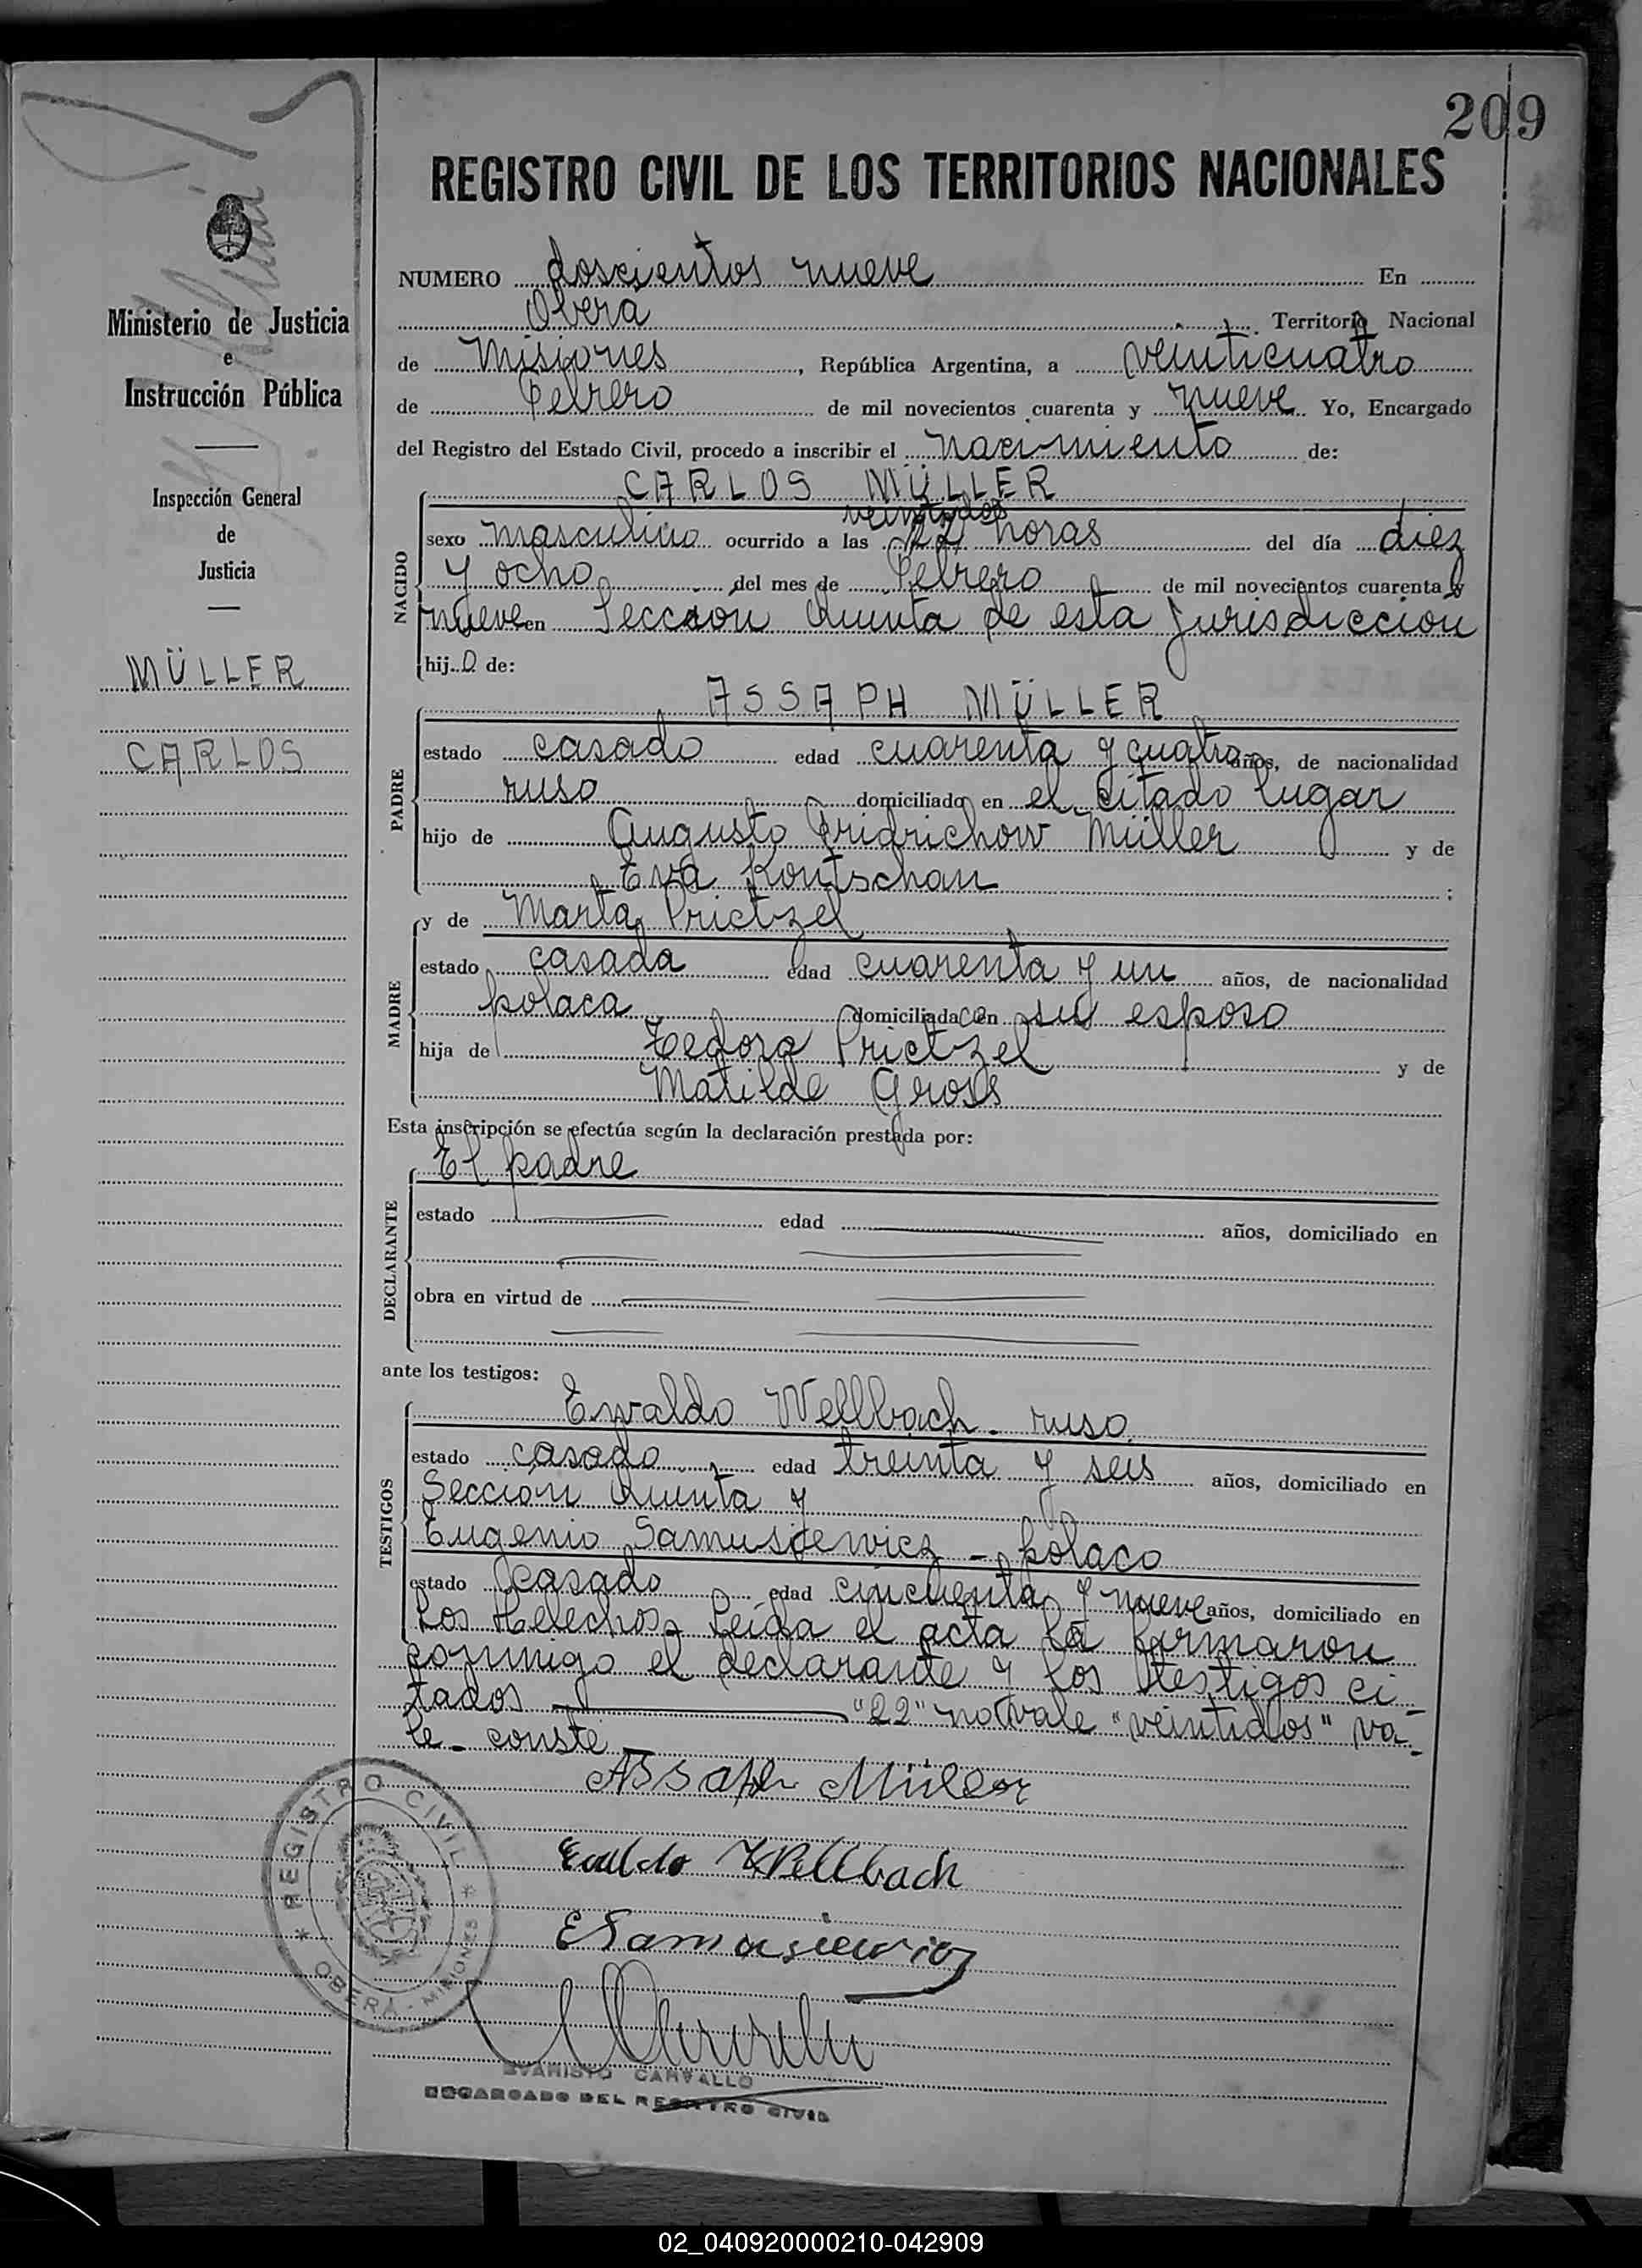 209
REGISTRO CIVIL DE LOS TERRITORIOS NACIONALES
Ministerio de Justicia
e
Instrucción Pública
Inspección General
de
Justicia
MÜLLER
CARLOS
NUMERO doscientos nueve En
Oberá Territorio Nacional
de Misiones, República Argentina, a veinticuatro
de Febrero de mil novecientos cuarenta y nueve Yo, Encargado
del Registro del Estado Civil, procedo a inscribir el nacimiento de:
CARLOS MÜLLER
veintidos
NACIDO
sexo masculino ocurrido a las 22 horas del día diez
y ocho del mes de Febrero de mil novecientos cuarenta y
nueve en Sección Quinta de esta jurisdicción
hijo de:
ASSAPH MÜLLER
PADRE
estado casado edad cuarenta y cuatro años, de nacionalidad
ruso domiciliado en el citado lugar
hijo de Augusto Fridrichow Müller y de
Eva Kontschan ;
y de Marta Prictzel
MADRE
estado casada edad cuarenta y un años, de nacionalidad
polaca domiciliada con su esposo
hija de Teodoro Prictzel y de
Matilde Gross
Esta inscripción se efectúa según la declaración prestada por:
El padre
DECLARANTE
estado edad años, domiciliado en
obra en virtud de
ante los testigos:
Evaldo Wellbach - ruso
TESTIGOS
estado casado edad treinta y seis años, domiciliado en
Sección Quinta y
Eugenio Samusiewicz - polaco
estado casado edad cincuenta y nueve años, domiciliado en
Los Helechos - Leída el acta la firmaron
conmigo el declarante y los testigos ci-
tados "22" no vale "veintidos" va-
le - conste
Assaph Müller
Evaldo Wellbach
E Samusiewicz
REGISTRO CIVIL
OBERÁ - MISIONES
EVARISTO CARVALLO
ENCARGADO DEL REGISTRO CIVIL
02_040920000210-042909